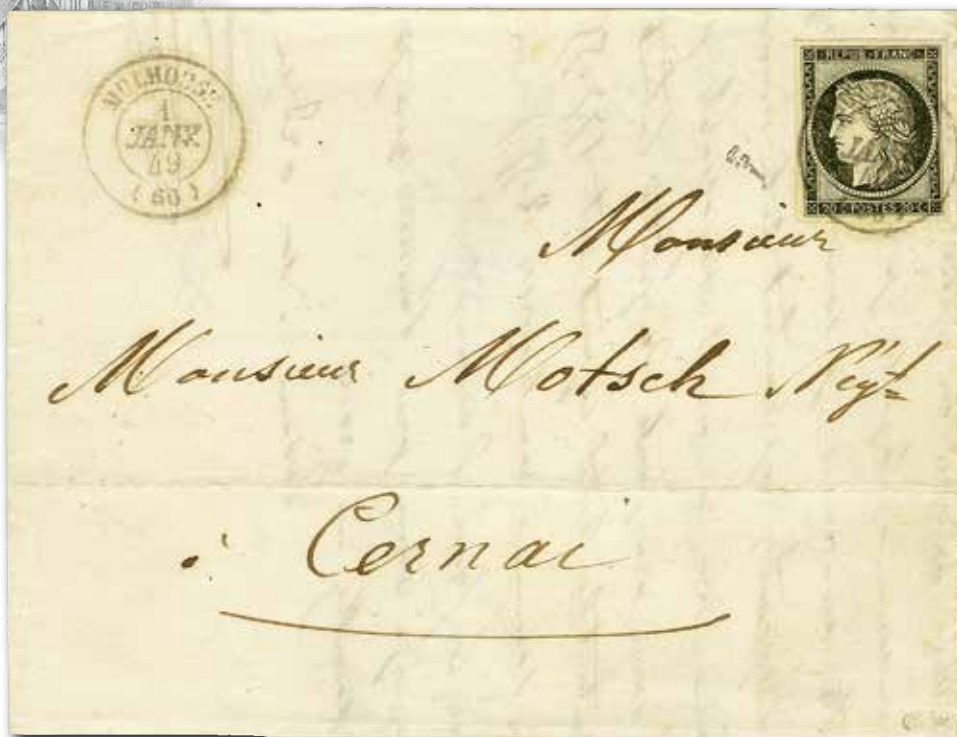 MULHOUSE
1
JANV.
49
(66)
REPUB. FRANC.
20 C POSTES 20 C
Monsieur
Monsieur Motsch Négt
à Cernai